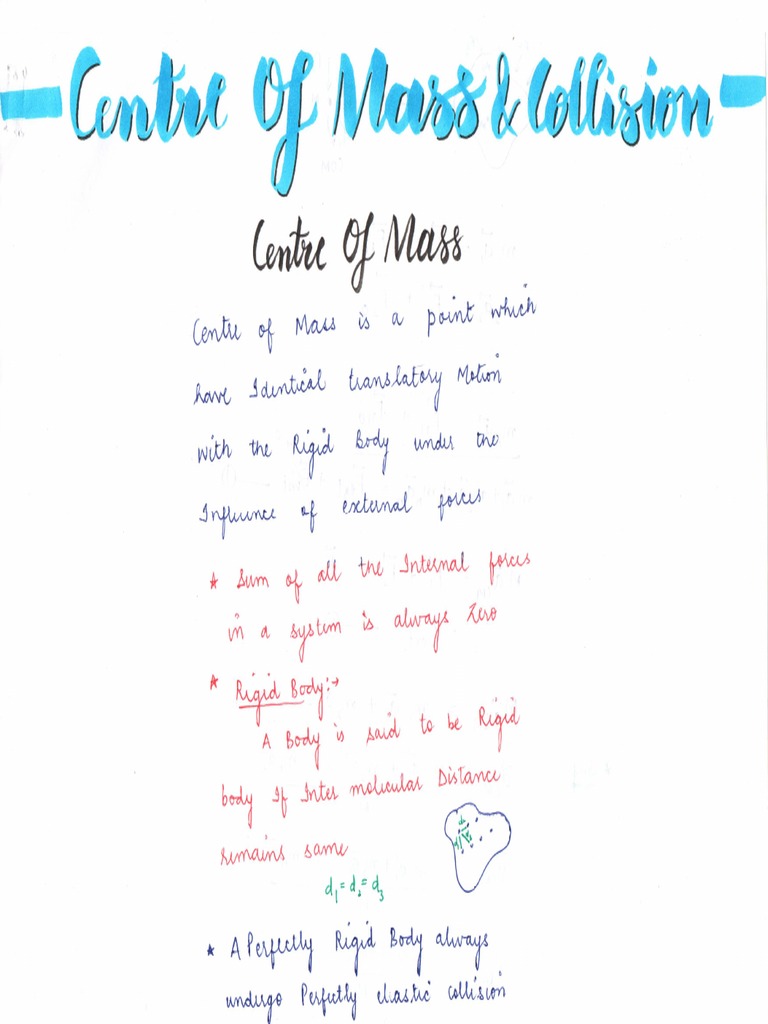 Centre Of Mass & Collision
Centre Of Mass
Centre of Mass is a point which
have Identical translatory Motion
with the Rigid Body under the
Influence of external forces
* Sum of all the Internal forces
in a system is always Zero
* Rigid Body:→
A Body is said to be Rigid
body If Inter molecular Distance
remains same
d₁ = d₂ = d₃
* A Perfectly Rigid Body always
undergo Perfectly elastic collision